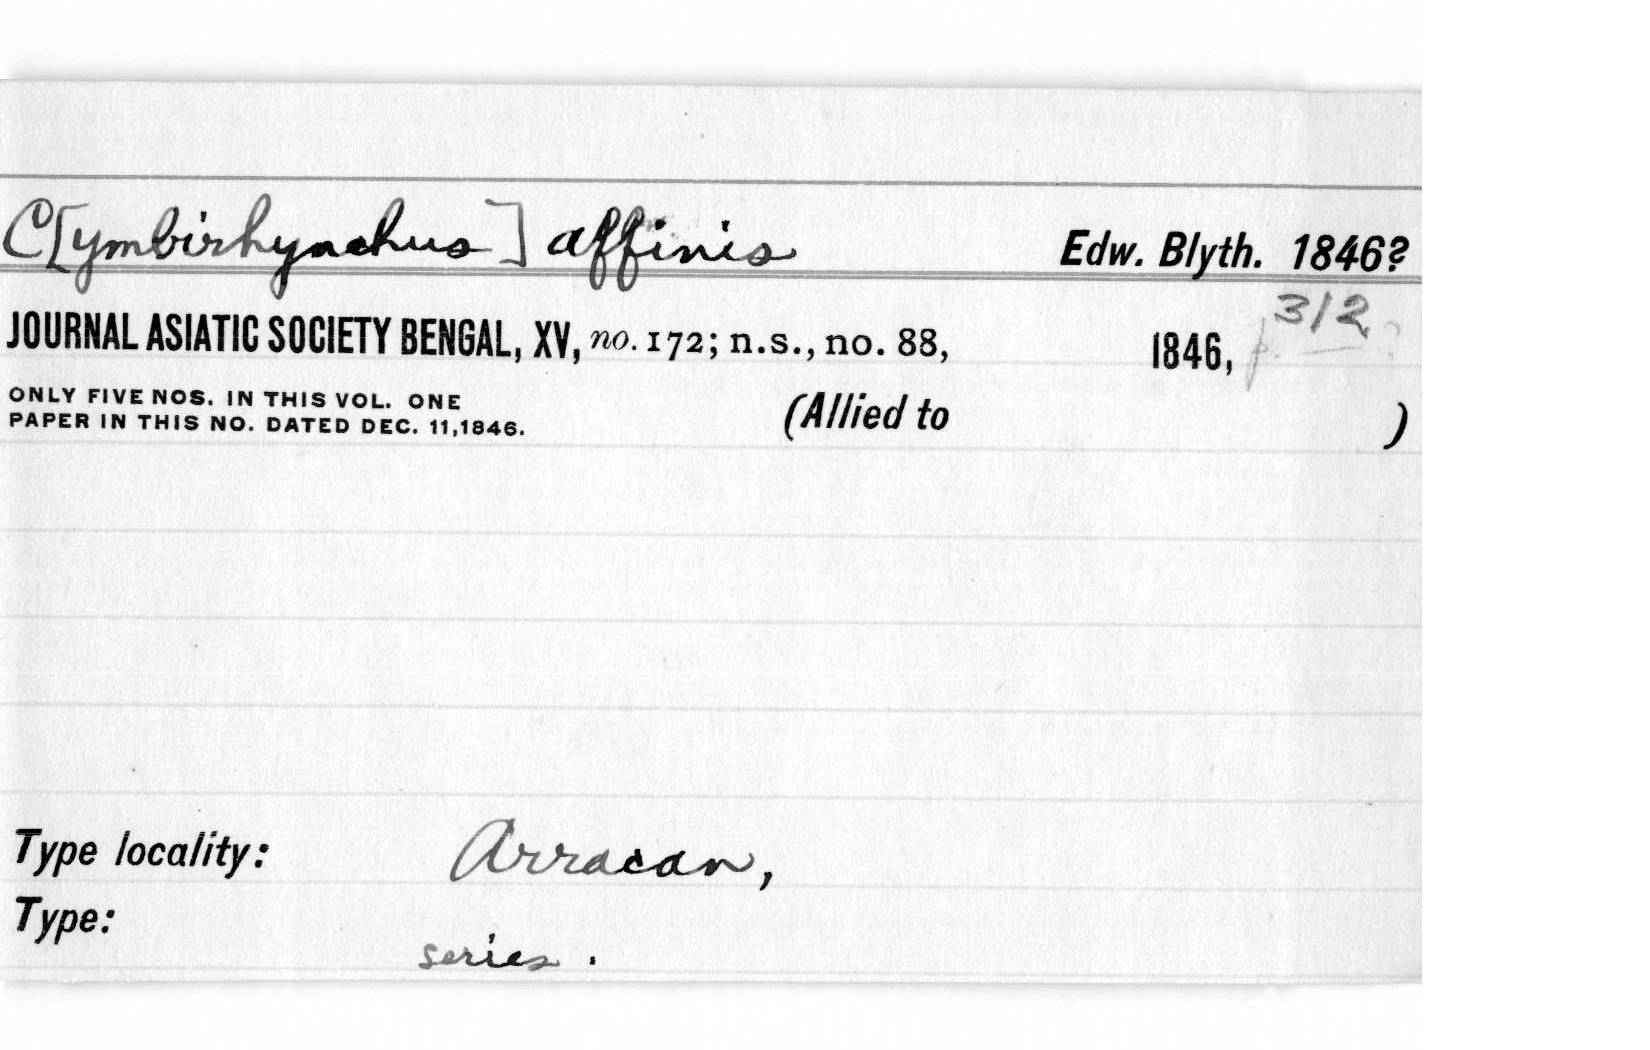 C[ymbirhynchus] affinis Edw. Blyth. 1846?
JOURNAL ASIATIC SOCIETY BENGAL, XV, no. 172; n.s., no. 88, 1846, p. 312 ?
ONLY FIVE NOS. IN THIS VOL. ONE
PAPER IN THIS NO. DATED DEC. 11, 1846.
(Allied to )
Type locality: Arracan,
Type:
series.